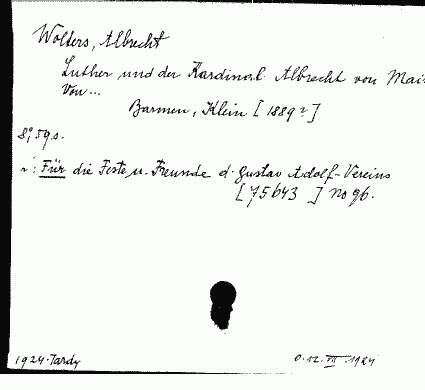 Wolters, Albrecht
Luther und der Kardinal Albrecht von Mai
Von...
Barmen, Klein [1889?]
8°, 59 s.
: Für die Feste u. Freunde d. Gustav Adolf-Vereins
[75643 ] no 96.
1924. Tardy
0.12.VII.1924